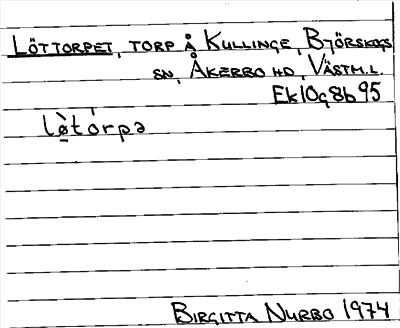 LÖTTORPET, TORP Å KULLINGE, BJÖRSKOGS
SN, ÅKERBO HD, VÄSTM.L.
Ek10g8b95
lø̀tórpə
BIRGITTA NURBO 1974